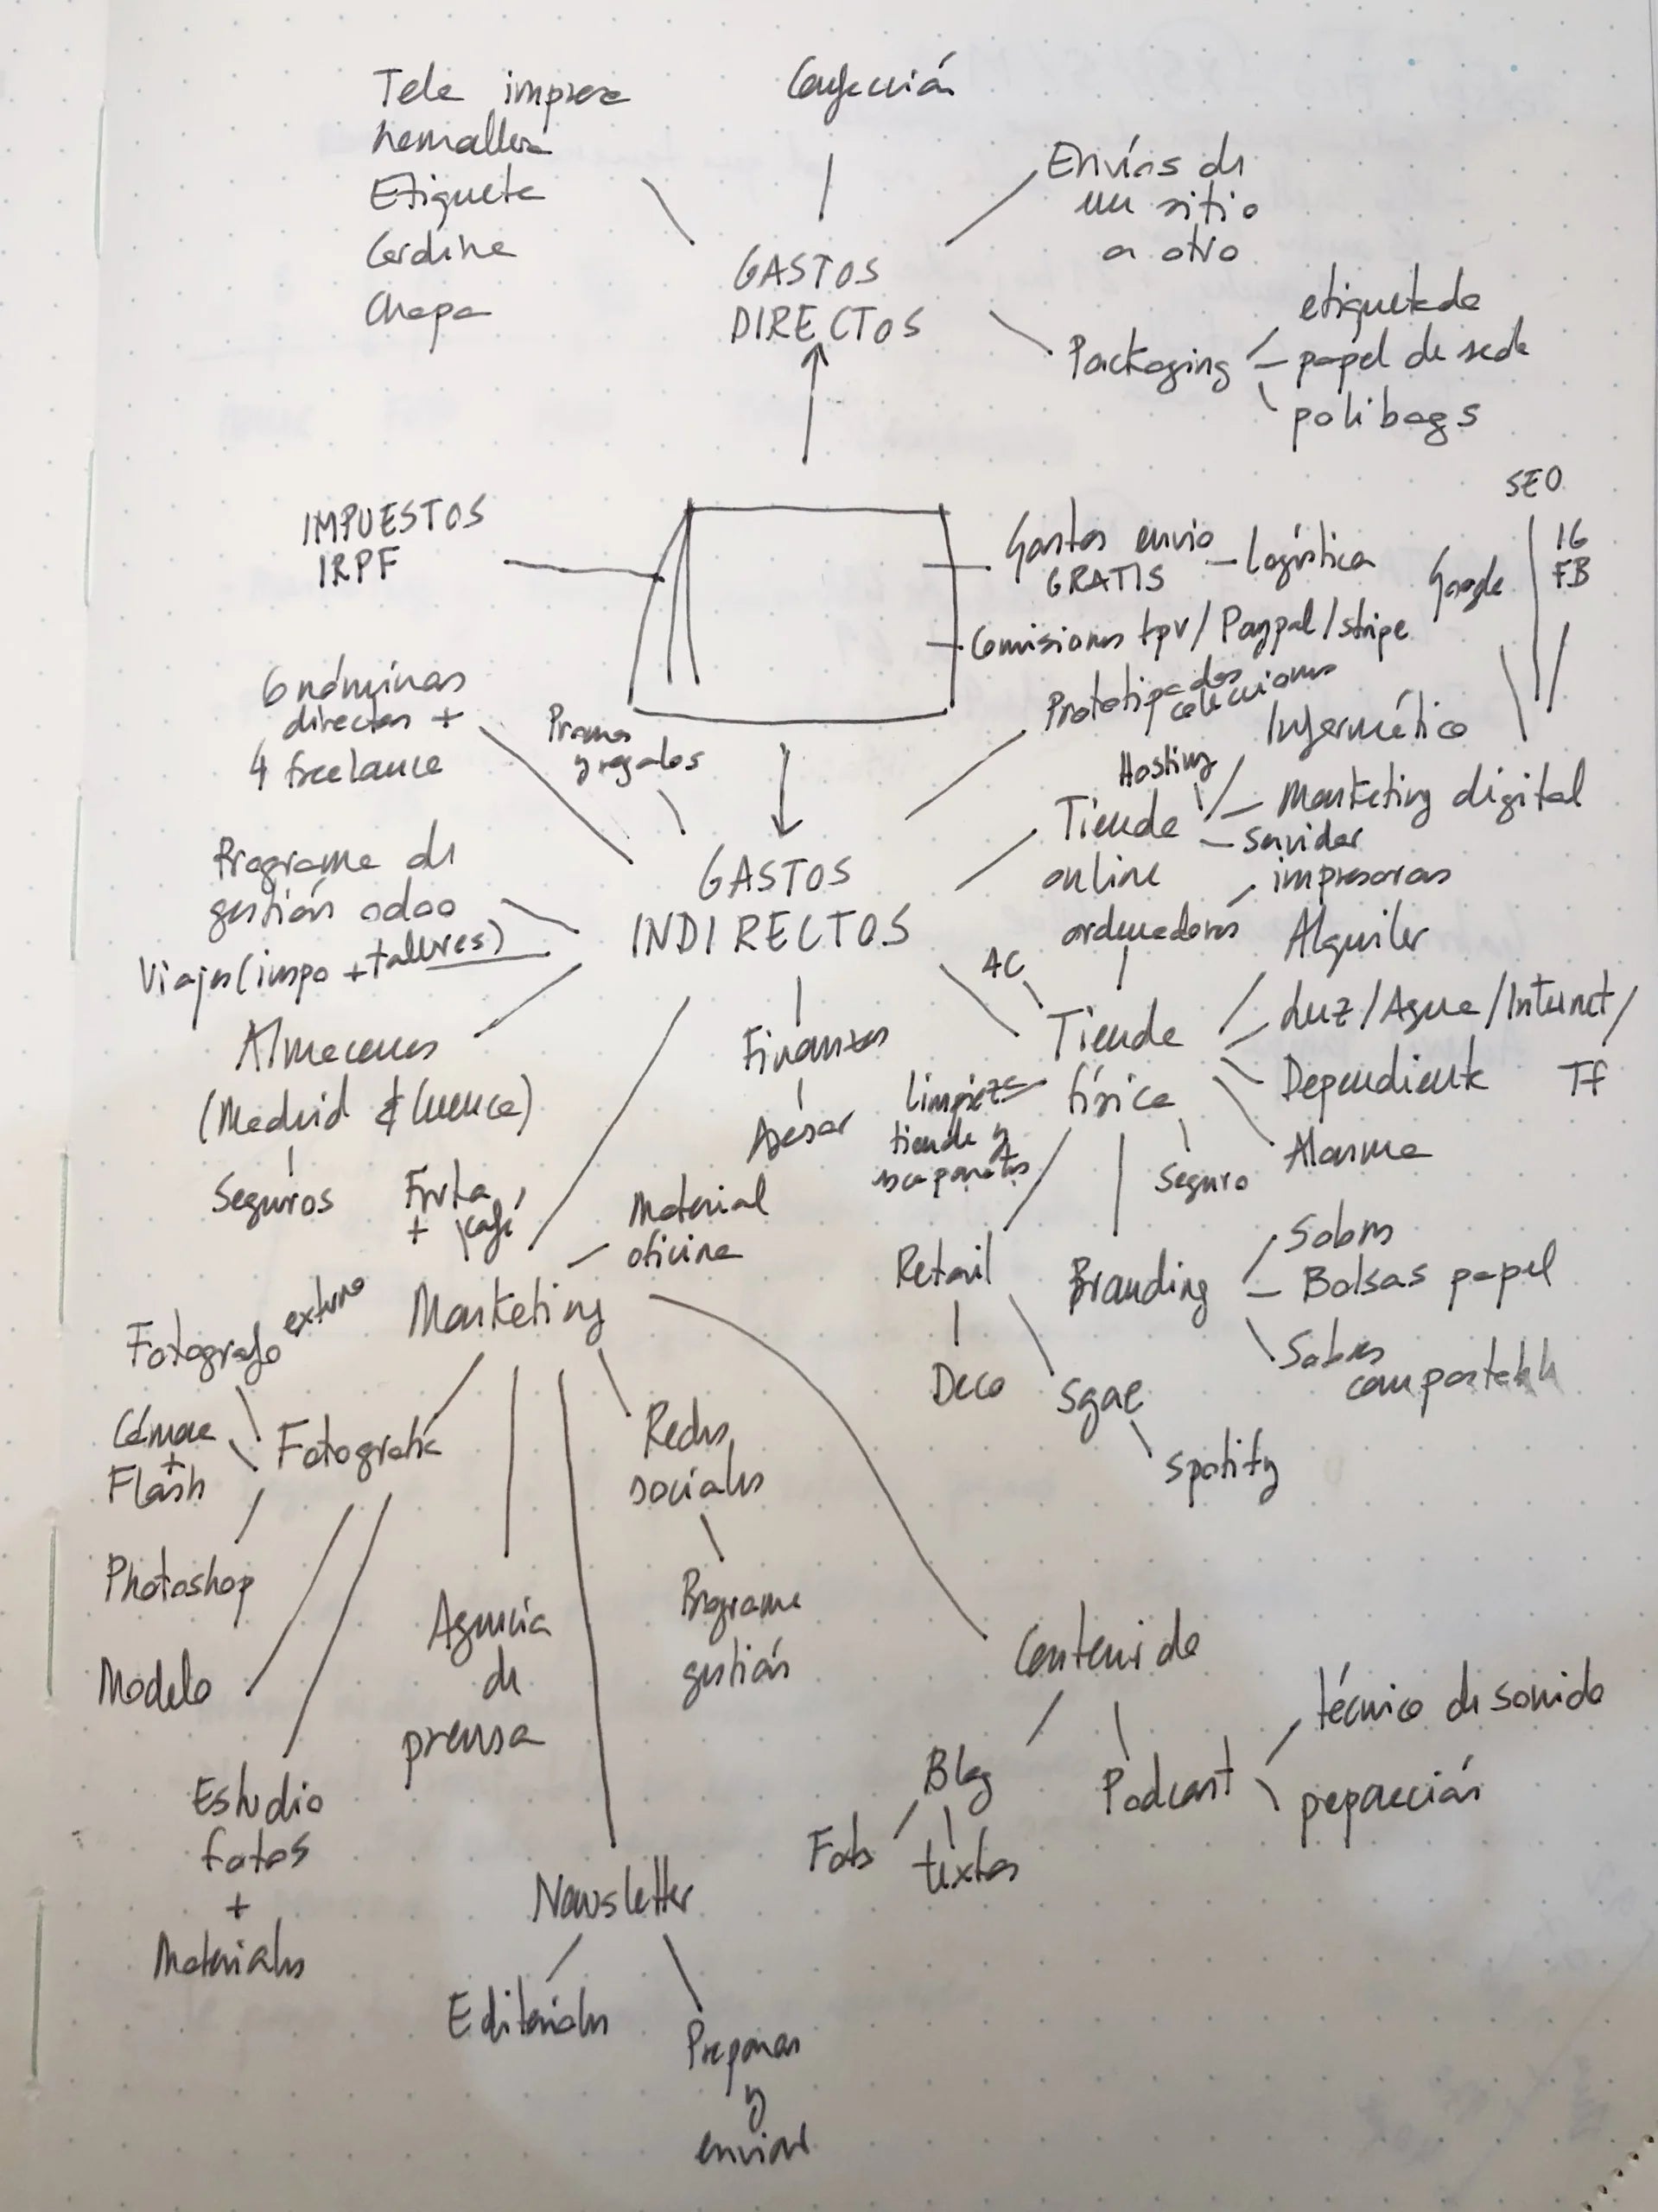 Tela impresa
Confección
hemallera
Etiqueta
Cordina
Chapa
Envíos de
un sitio
a otro
GASTOS
DIRECTOS
Packaging
etiquetado
papel de seda
polibags
IMPUESTOS
IRPF
Gastos envio
GRATIS
Logística
Comisiones tpv/Paypal/stripe
SEO
Google
IG
FB
6 nóminas
directas +
4 freelance
Promos
y regalos
Prototipados
colecciones
Informático
Hosting
Tienda
online
Marketing digital
Servidor
impresoras
ordenadores
Programa de
gestión odoo
Viajes (impo + talleres)
GASTOS
INDIRECTOS
AC
Tienda
física
Alquiler
Luz/Agua/Internet/
Tf
Dependienta
Alarma
Seguro
limpieza
tienda y
escaparates
Almacenes
(Madrid & Cuenca)
Seguros
Finanzas
Asesor
Fruta
+ café
Material
oficina
Marketing
Retail
Deco
Sgae
Spotify
Branding
Sobres
Bolsas papel
Sobres
Fotografo externo
Cámara
+
Flash
Fotografía
Photoshop
Modelo
Estudio
fotos
+
Materiales
Agencia
de
prensa
Redes
sociales
Programa
gestión
Contenido
Blog
Fotos
textos
Podcast
técnico de sonido
Newsletter
Editoriales
Preparar
y
enviar